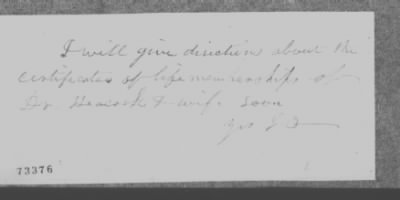 I will give directions about the
certificates of life memberships of
Dr. Heacock & wife soon
Yrs
73376